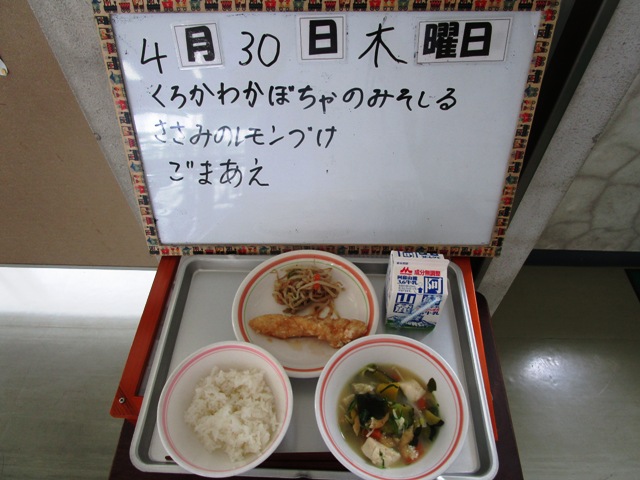 4月30日木曜日
くろかわかぼちゃのみそしる
ささみのレモンづけ
ごまあえ
成分無調整